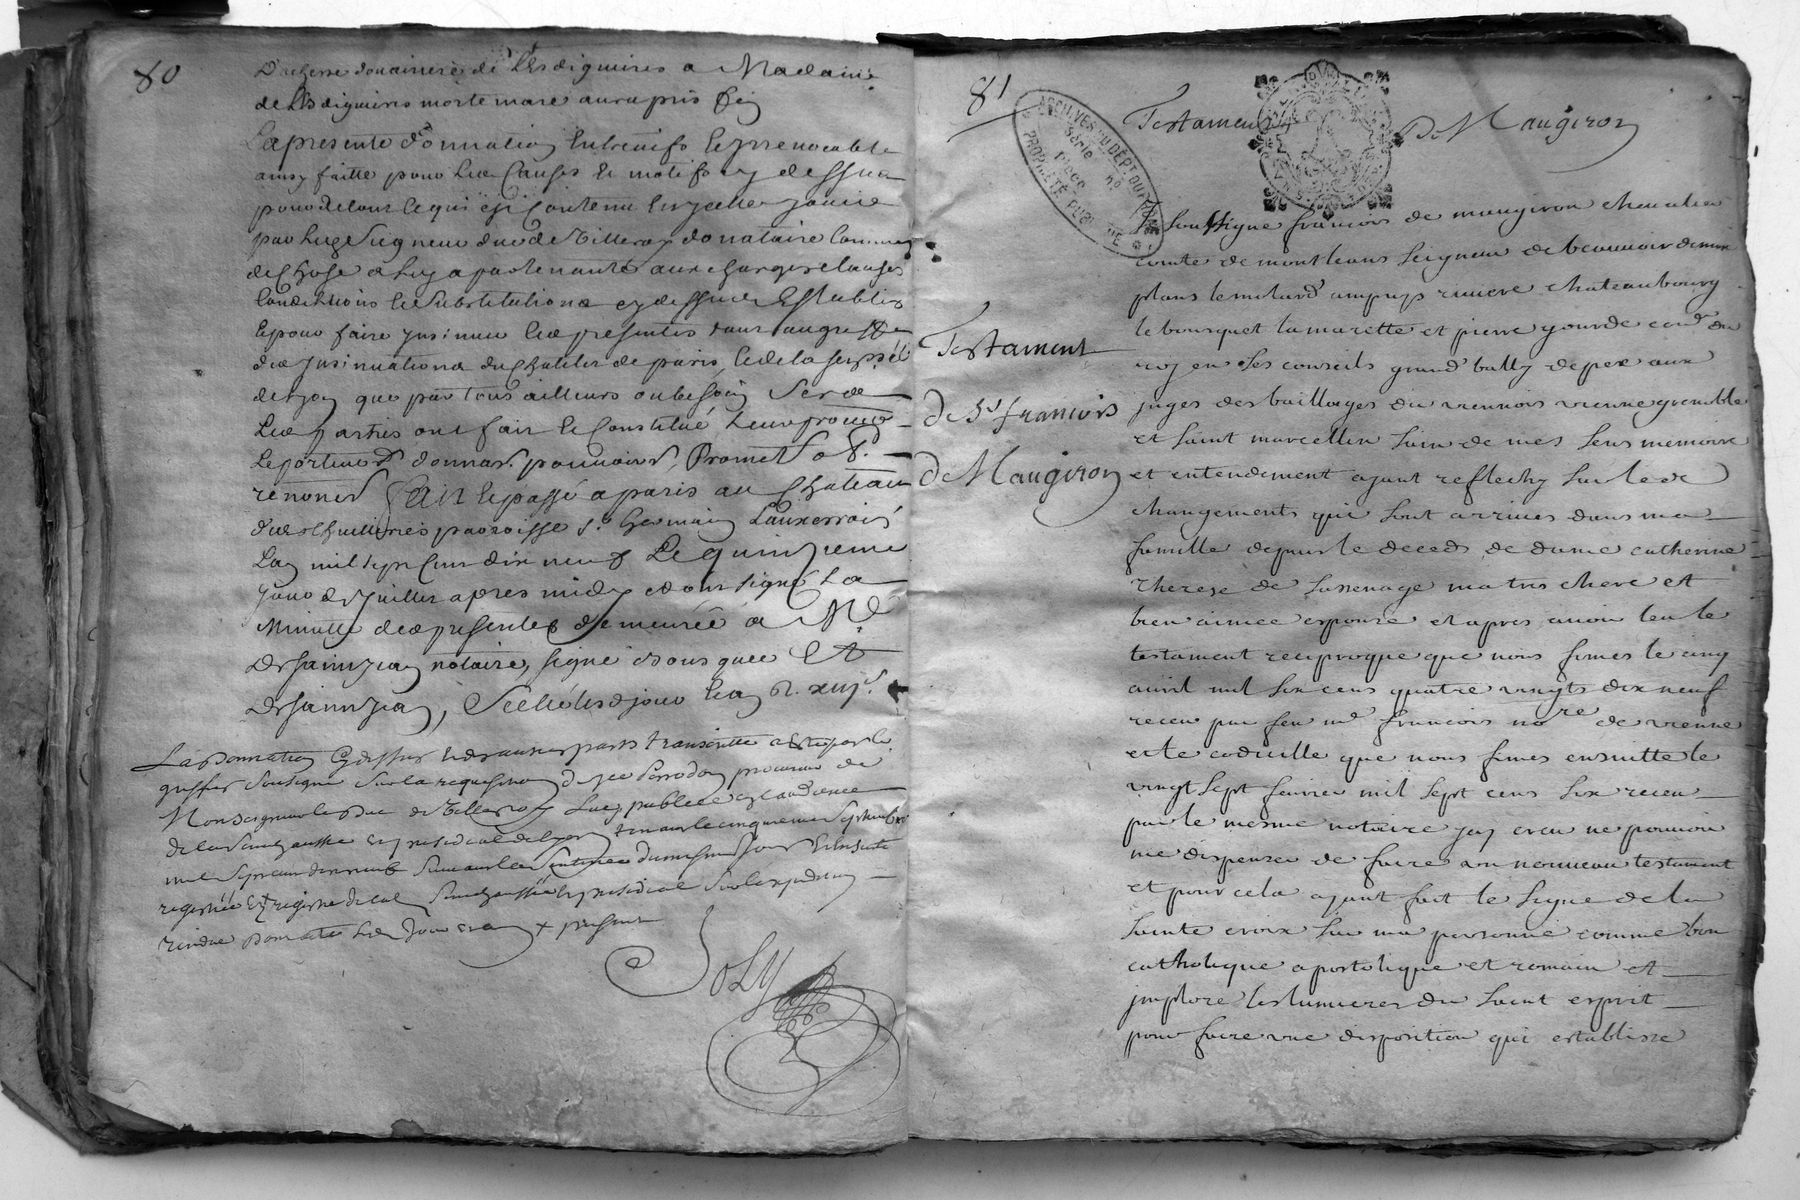 80
Duchesse douairiere de Lesdiguieres a Madame
de Lesdiguieres mortemare aura pris fin
La presente donnation entrevifs Irrevocable
ainsy faitte pour Les Causes et motifs cy dessus
pour de tout ce qui est Contenu en ycelle jouir
par led Seigneur duc de Villeroy donataire Comme
de Chose a Luy apartenante aux charges clauses
Conditions et Substitutions cy dessus Establies
et pour faire Insinuer les presentes tant au greffe
des Insinuations du Chatelet de paris, et de la
de Lyon que par tous ailleurs ou besoin Sera
Les parties ont fait et Constitué Leur procureur
le porteur donnant pouvoir, Promett. obl.
renonc. Fait et passé a paris au Chateau
des thuilleries parroisse St. Germain Lauxerrois
Lan mil sept Cent dix neuf Le quinzieme
jour de Juillet apres midy et ont signé La
Minutte des presentes demeurée a Me
notaire, signé
Scellé lesd jour et an
La Donnation Cy dessus et des autres parts transcritte a esté par le
greffier Soussigné Sur la requisition de procureur de
Monseigneur le Duc de Villeroy Lue publiée en l'audience
de la Senechaussée et presidial de Lyon le cinquieme Septembre
mil Sept cent dix neuf Suivant la Sentence du mesme jour et Ensuite
registrée Es registres de lad Senechaussée et presidial
rendue Led Jour et an present
JOLY
81
ARCHIVES DU DÉPT DU RHÔNE
Série
Pièce
No
PROPRIÉTÉ PUBLIQUE
Testament De Maugiron
Testament
de Sr francois
de Maugiron
Je soussigne francois de maugiron chevalier
comte de montleans seigneur de beauvoir de marc
plans lemelard ampuys riviere chateaubourg
le bousquet la marette et pierre gourde conr du
roy en ses conseils grand bally depee aux
juges des baillages du viennois vienne grenoble
et saint marcellin sain de mes sens memoire
et entendement ayant reflechy sur les
changements qui sont arrives dans ma
famille depuis le deced de dame catherine
therese de sassenage ma tres chere et
bien aimee espouse et apres avoir leu le
testament reciproque que nous fimes le cinq
avril mil six cens quatre vingts dix neuf
receu par feu me francois nore de vienne
et le codicille que nous fimes ensuitte le
vingt sept fevrier mil sept cens six receu
par le mesme notaire jay creu ne pouvoir
me dispenser de faire un nouveau testament
et pour cela ayant fait le signe de la
sainte croix sur ma personne comme bon
catholique apostolique et romain et
jmplore les lumieres du saint esprit
pour faire une disposition qui establisse